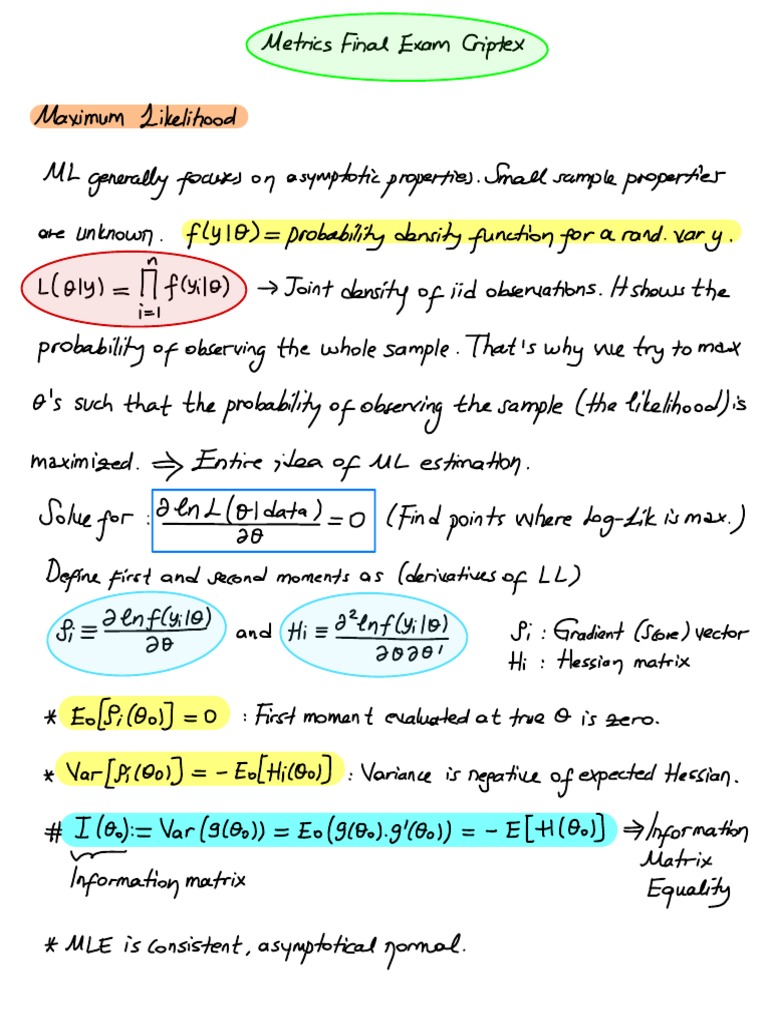 Metrics Final Exam Criptex
Maximum Likelihood
ML generally focuses on asymptotic properties. Small sample properties
are unknown. f(y|θ) = probability density function for a rand. var y.
L(θ|y) = ∏_{i=1}^{n} f(yi|θ) → Joint density of iid observations. It shows the
probability of observing the whole sample. That's why we try to max
θ's such that the probability of observing the sample (the likelihood) is
maximized. ⇒ Entire idea of ML estimation.
Solve for : ∂lnL(θ|data)/∂θ = 0 (Find points where Log-Lik is max.)
Define first and second moments as (derivatives of LL)
gi ≡ ∂lnf(yi|θ)/∂θ and Hi ≡ ∂²lnf(yi|θ)/∂θ∂θ' gi : Gradient (Score) vector
Hi : Hessian matrix
* E₀[gi(θ₀)] = 0 : First moment evaluated at true θ is zero.
* Var[gi(θ₀)] = -E₀[Hi(θ₀)] : Variance is negative of expected Hessian.
# I(θ₀) := Var(g(θ₀)) = E₀(g(θ₀).g'(θ₀)) = -E[H(θ₀)] ⇒ Information
Matrix
Information matrix Equality
* MLE is consistent, asymptotical normal.